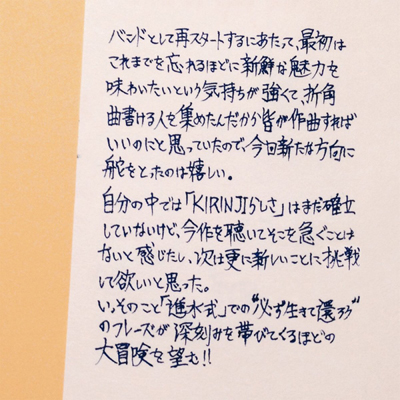 バンドとして再スタートするにあたって、最初は
これまでを忘れるほどに新鮮な魅力を
味わいたいという気持ちが強くて、折角
曲書ける人を集めたんだから皆が作曲すれば
いいのにと思っていたので、今回新たな方向に
舵をとったのは嬉しい。
自分の中では「KIRINJIらしさ」はまだ確立
していないけど、今作を聴いてそこを急ぐことは
ないと感じたし、次は更に新しいことに挑戦
して欲しいと思った。
いっそのこと「進水式」での“必ず生きて還ろう”
のフレーズが深刻みを帯びてくるほどの
大冒険を望む!!